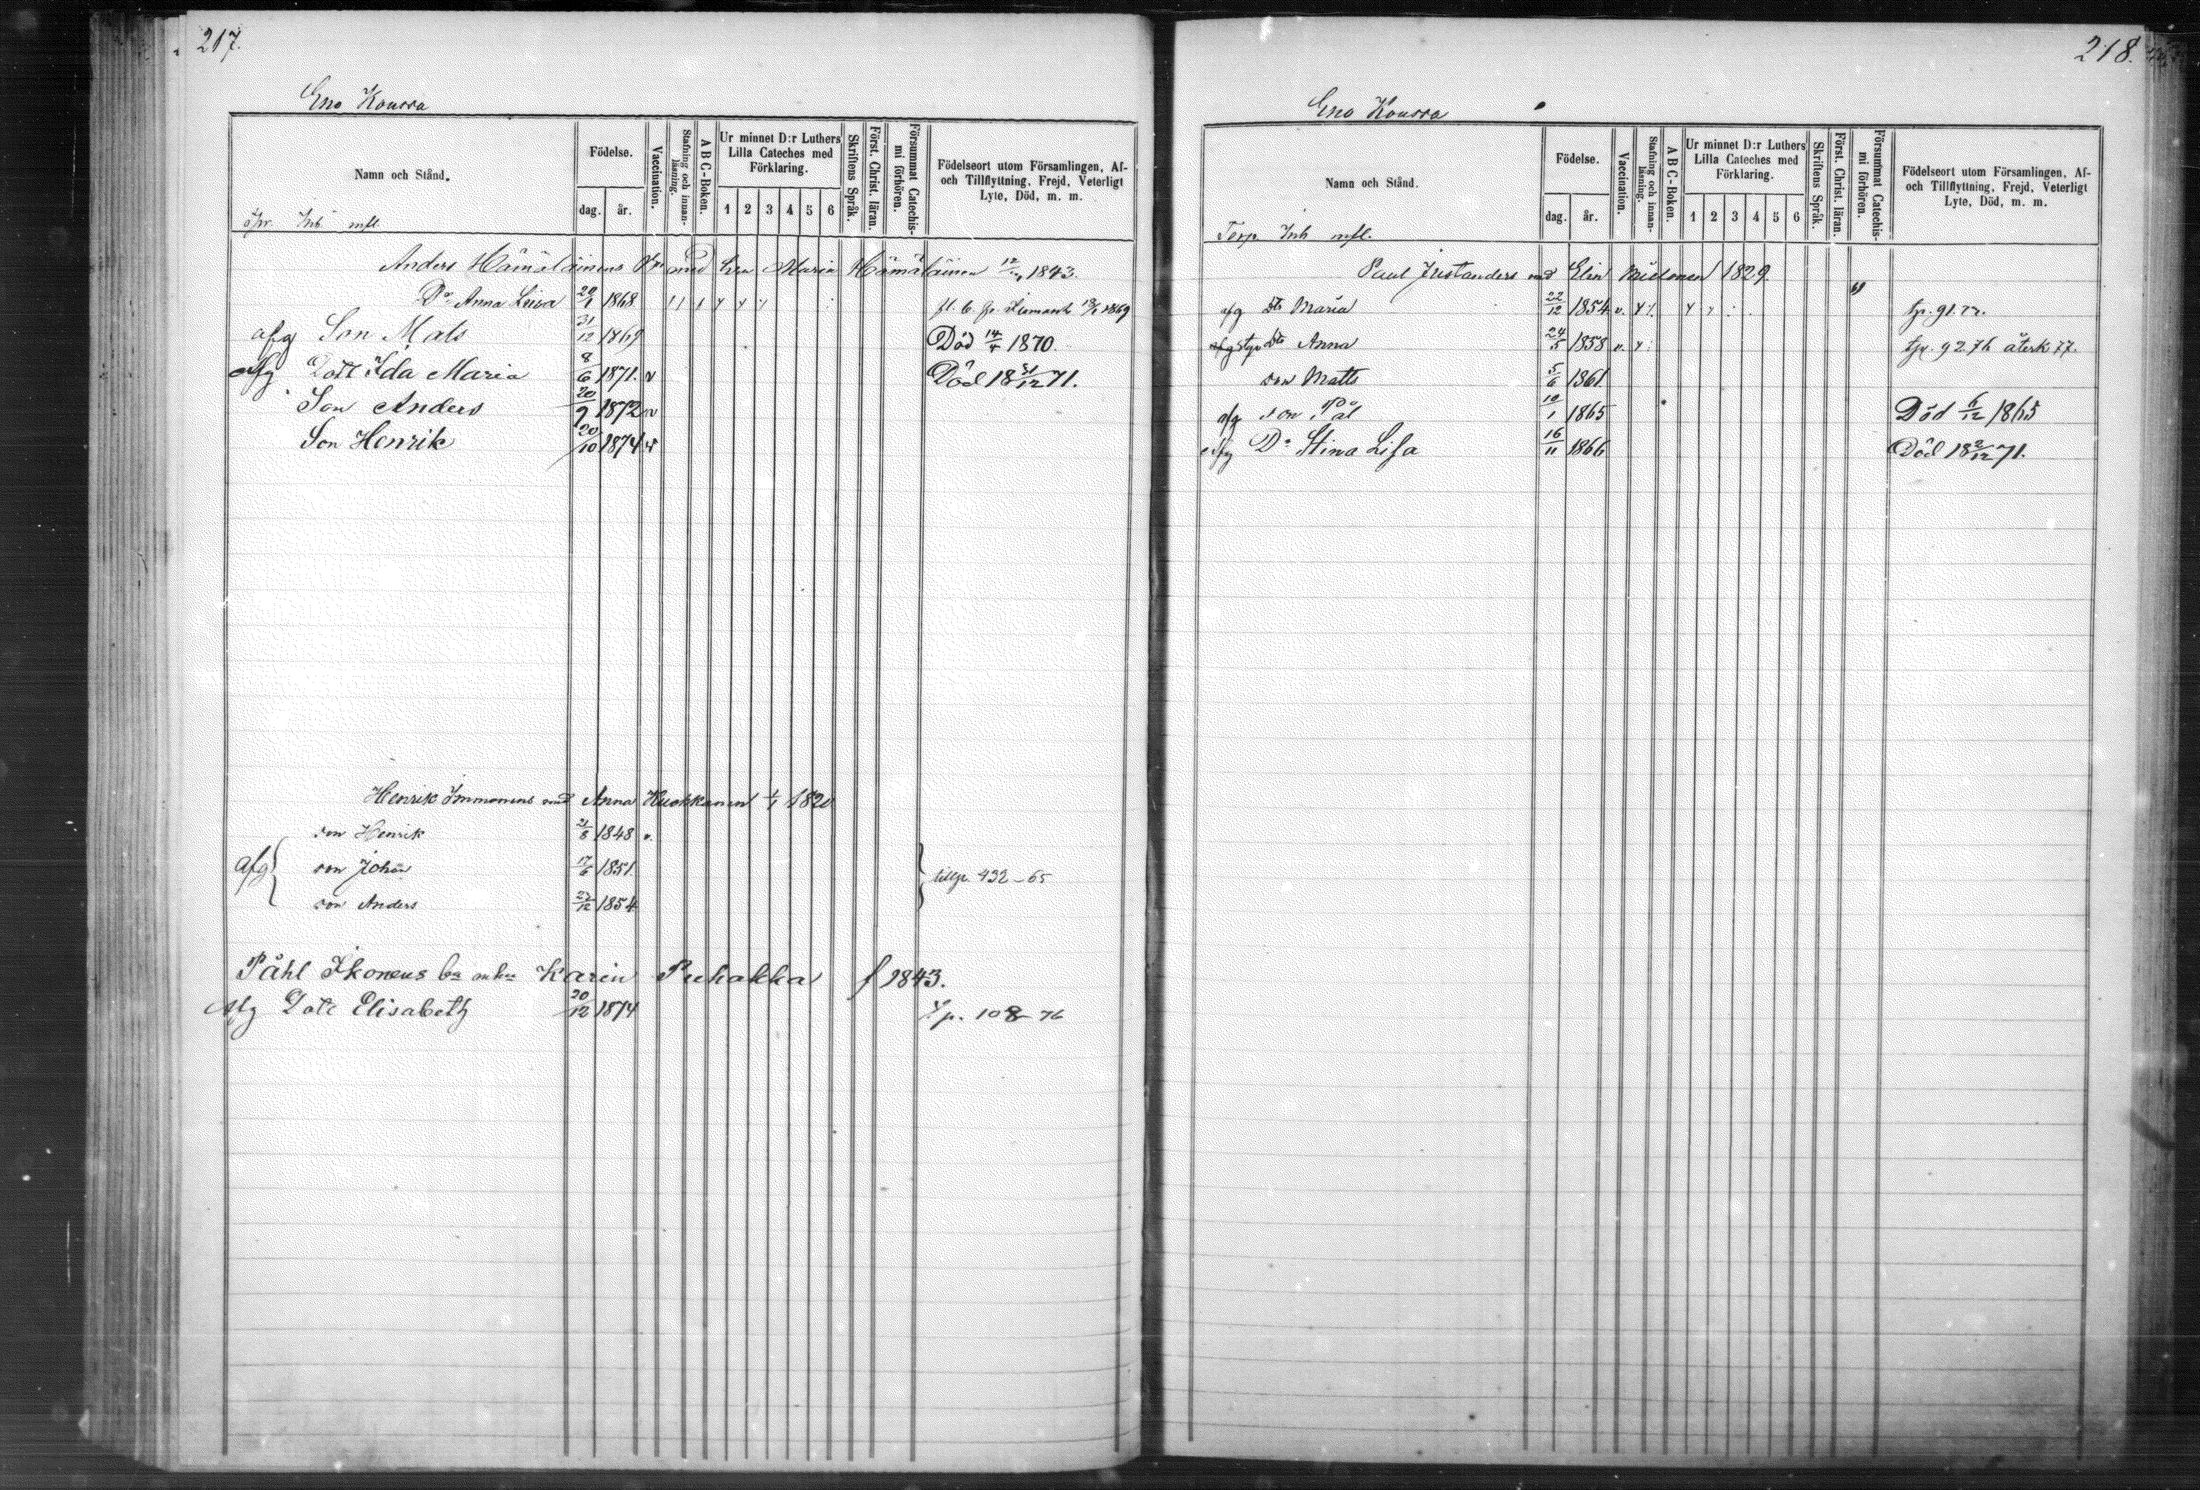 217.
Eno Kousra
Namn och Stånd.
Födelse.
dag.
år.
Vaccination.
Stafning och innanläsning.
A B C-Boken.
Ur minnet D:r Luthers Lilla Cateches med Förklaring.
1 2 3 4 5 6
Skriftens Språk.
Först. Christ. läran.
Försummat Catechismi förhören.
Födelseort utom Församlingen, Af- och Tillflyttning, Frejd, Veterligt Lyte, Död, m. m.
Inh mfl.
Anders Hämäläinens med Maria Hämäläinen 1843.
Do Anna Lisa 1868 1869
afg Son Mats 31/12 1869 Död 1870.
afg Dott Ida Maria 8/6 1871. v Död 18 31/12 71.
Son Anders 20/9 1872 v
Son Henrik 20/10 1874 v
Henrik Immonens med Anna Kuokkanen 1820
son Henrik 21/8 1848 v.
afg son Johan 17/6 1851.
son Anders 1854
432-65
Påhl Ikonens Karin Puhakka f 1843.
Afg Dott Elisabeth 20/12 1874 108 76
218.
Eno Kousra
Namn och Stånd.
Födelse.
dag.
år.
Vaccination.
Stafning och innanläsning.
A B C-Boken.
Ur minnet D:r Luthers Lilla Cateches med Förklaring.
1 2 3 4 5 6
Skriftens Språk.
Först. Christ. läran.
Försummat Catechismi förhören.
Födelseort utom Församlingen, Af- och Tillflyttning, Frejd, Veterligt Lyte, Död, m. m.
Torp Inh mfl.
Paul med Elin 1829.
afg Maria 22/12 1854 v.
Anna 24/5 1858 v. 92.76 återk 77.
son Matts 5/6 1861.
afg son Pål 1865 Död 6/12 1865
afg Do Stina Lisa 16/11 1866 Död 18 2/12 71.